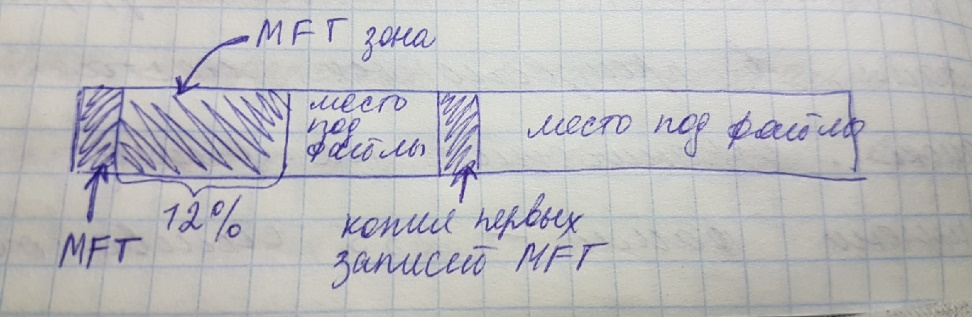 MFT зона
место
под
файлы
место под файлы
12%
MFT
копии первых
записей MFT